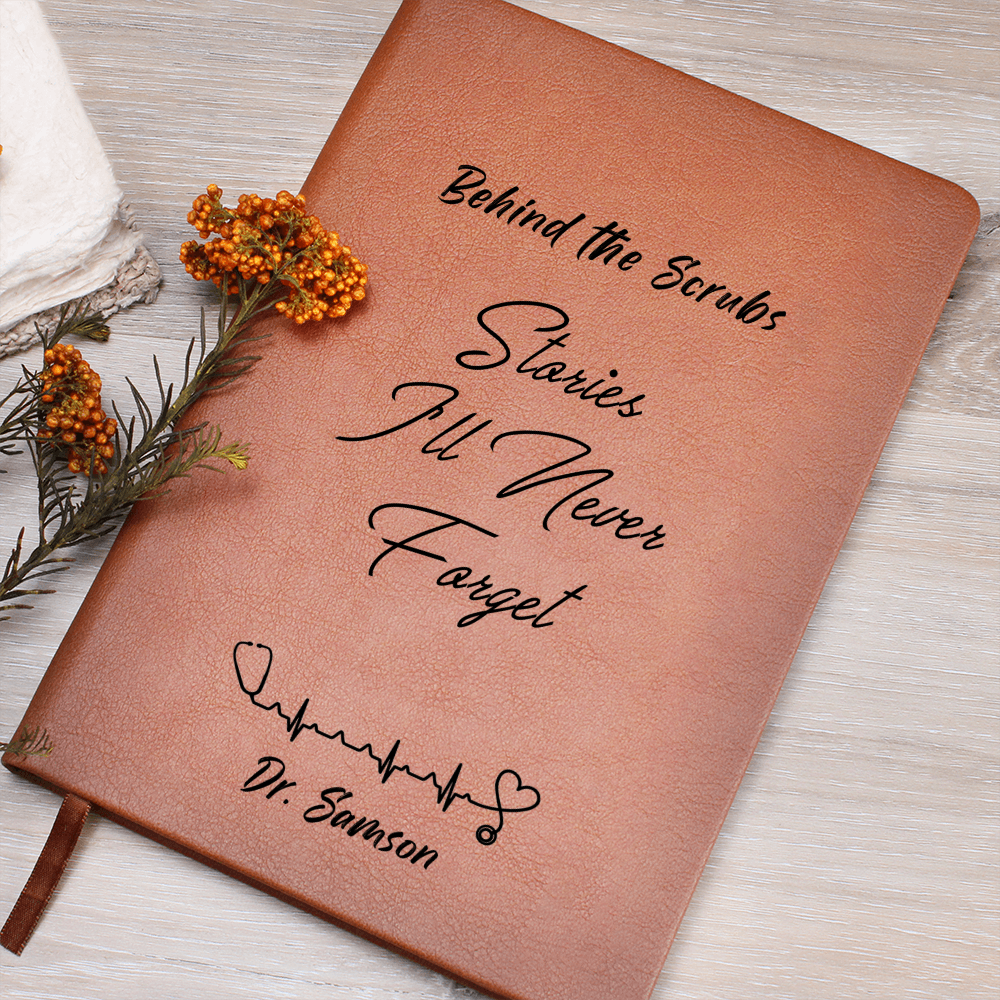 Behind the Scrubs
Stories
I'll Never
Forget
Dr. Samson